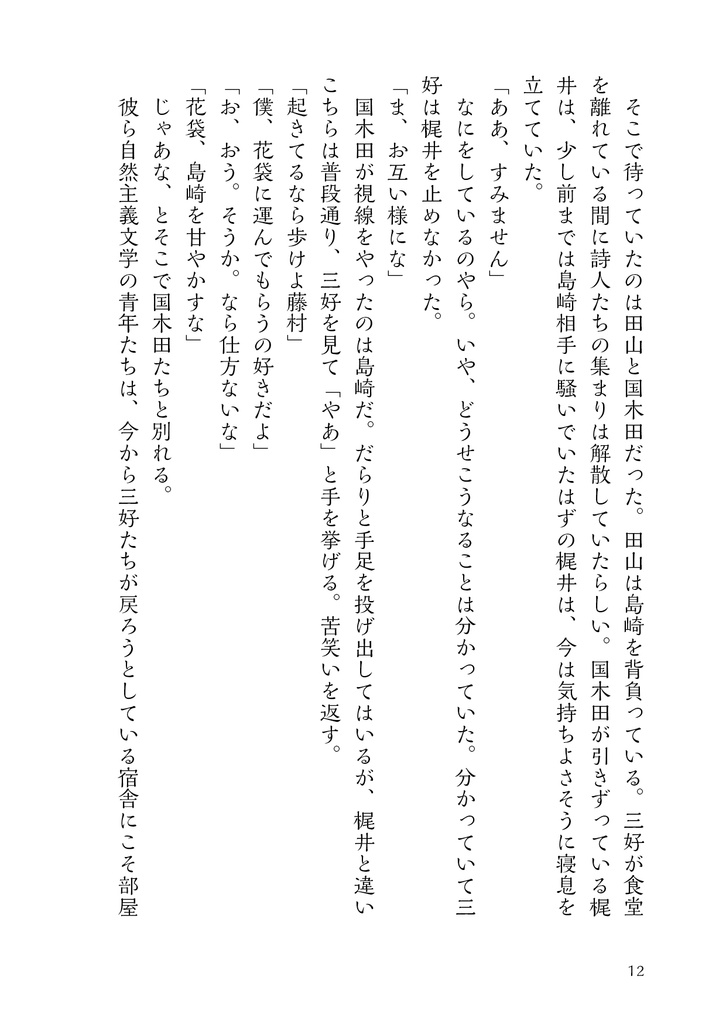 そこで待っていたのは田山と国木田だった。田山は島崎を背負っている。三好が食堂
を離れている間に詩人たちの集まりは解散していたらしい。国木田が引きずっている梶
井は、少し前までは島崎相手に騒いでいたはずの梶井は、今は気持ちよさそうに寝息を
立てていた。
「ああ、すみません」
　なにをしているのやら。いや、どうせこうなることは分かっていた。分かっていて三
好は梶井を止めなかった。
「ま、お互い様にな」
　国木田が視線をやったのは島崎だ。だらりと手足を投げ出してはいるが、梶井と違い
こちらは普段通り、三好を見て「やあ」と手を挙げる。苦笑いを返す。
「起きてるなら歩けよ藤村」
「僕、花袋に運んでもらうの好きだよ」
「お、おう。そうか。なら仕方ないな」
「花袋、島崎を甘やかすな」
　じゃあな、とそこで国木田たちと別れる。
　彼ら自然主義文学の青年たちは、今から三好たちが戻ろうとしている宿舎にこそ部屋
12